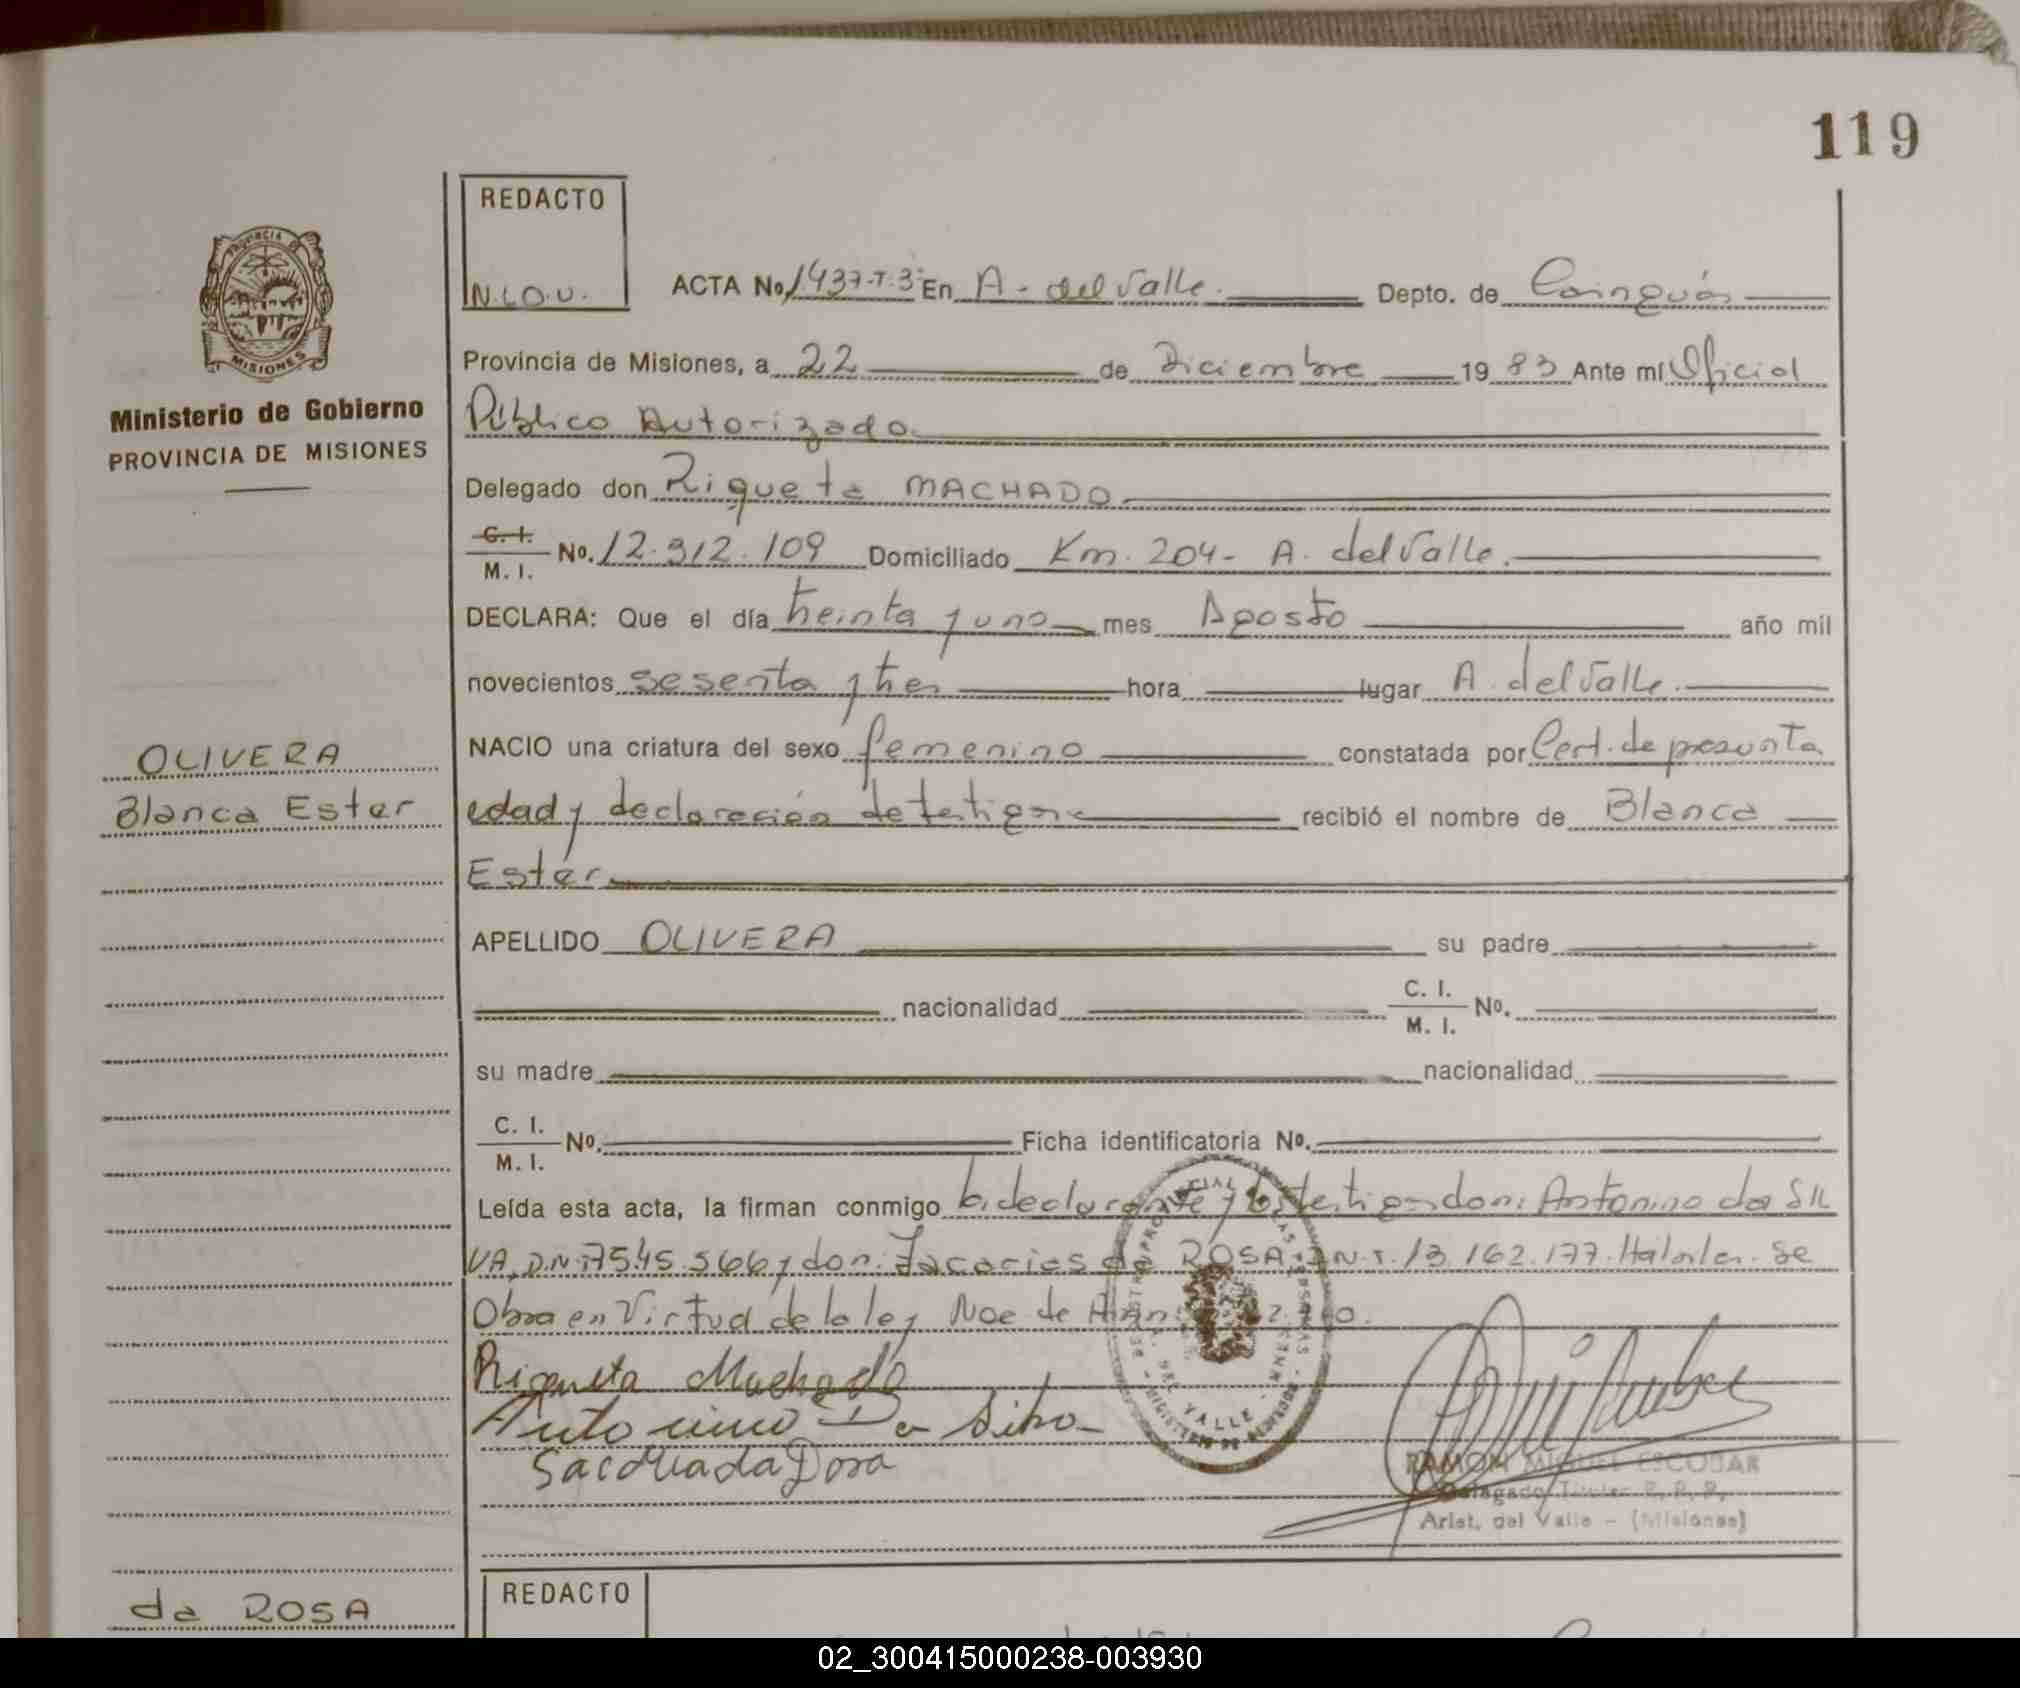 119
REDACTO
N.L.O.U.
PROVINCIA DE
MISIONES
Ministerio de Gobierno
PROVINCIA DE MISIONES
ACTA No. 1437-T.3º En A. del Valle. Depto. de Cainguás
Provincia de Misiones, a 22 de Diciembre 19 83 Ante mí Oficial
Público Autorizado
Delegado don Riqueta MACHADO
C. I. M. I. No. 12.312.109 Domiciliado Km. 204- A. del Valle.
DECLARA: Que el día treinta y uno mes Agosto año mil
novecientos sesenta y tres hora lugar A. del Valle.
NACIO una criatura del sexo femenino constatada por Cert. de presunta
edad y declaración de testigos recibió el nombre de Blanca
Ester
OLIVERA
Blanca Ester
APELLIDO OLIVERA su padre
nacionalidad C. I. M. I. No.
su madre nacionalidad
C. I. M. I. No. Ficha identificatoria No.
Leída esta acta, la firman conmigo la declarante y los testigos don: Antonino da SIL
VA, D.N.I. 7.545.566 y don: Zacarias da ROSA D.N.I. 13.162.177. Hábiles. Se
Obra en Virtud de la ley Nac. de
Riqueta Machado
Antonino Da Silva
RAMON MIGUEL ESCOBAR
Delegado Titular R. P. P.
Arist. del Valle - (Misiones)
da ROSA
REDACTO
02_300415000238-003930